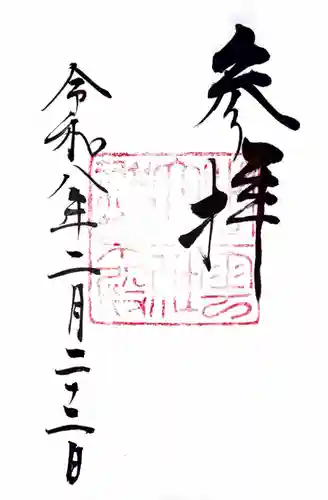 参拝
令和八年二月二十二日